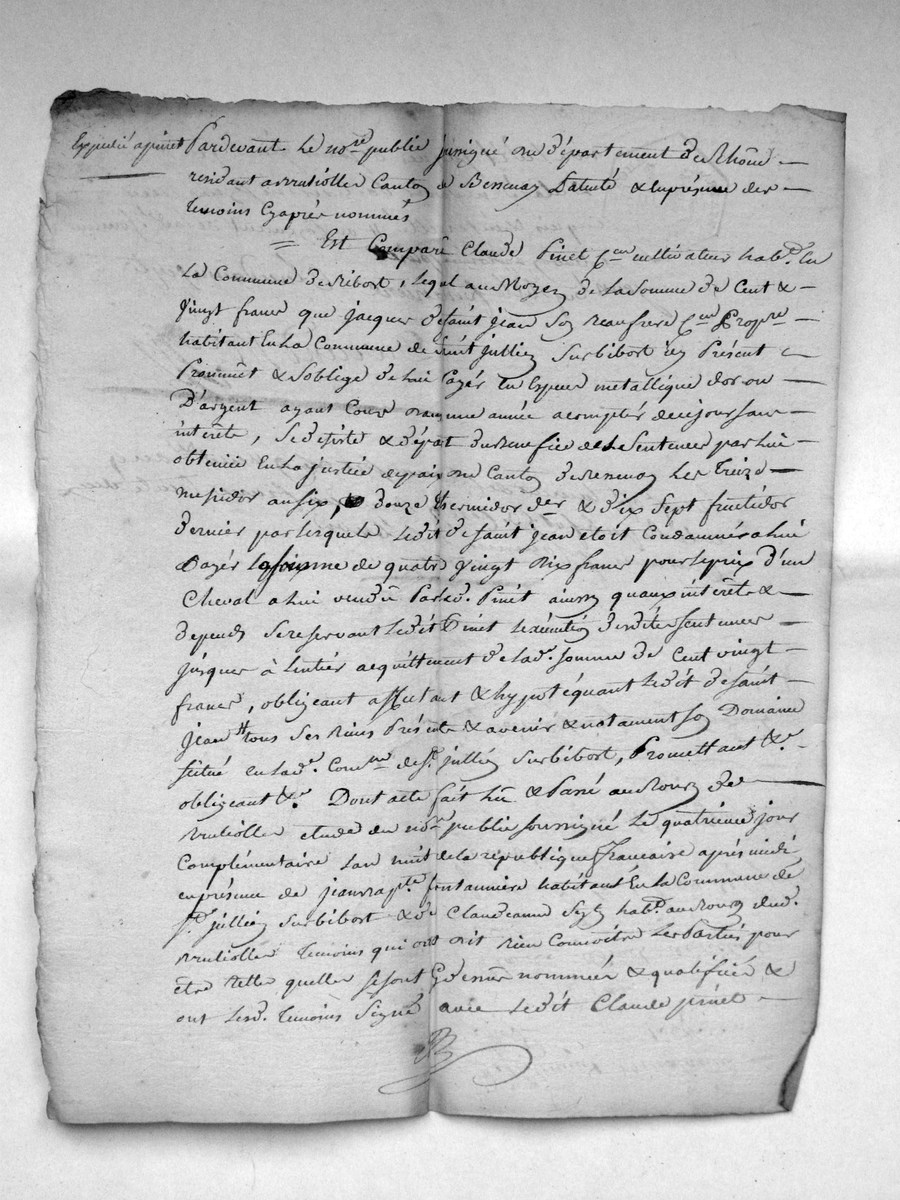 Expedié a pinet
Pardevant Le nore public soussigné au département du Rhône
residant a Brullolles Canton de Bessenay Patenté & en présence des
temoins Cyaprés nommés
Est Comparû Claude Pinet Cen cultivateur habt. En
La Commune de Bibost, lequel au Moyen de la Somme de Cent &
Vingt francs que jacques de saint jean Son beaufrere Cen Propre
habitant En La Commune de Saint jullien Sur bibost icy Présent
Prommet & Soblige de lui Payér En Espece metallique dor ou
D'argent ayant Cours dans une année a comptér de ce jour sans
intérêts, Se desiste & départ du benefice de la Sentences par lui
obtenüe En La justice de paix du Canton de Bessenay Les Treize
messidor an six, douze thermidor der & dix Sept fructidor
dernier par lesquels ledit de Saint jean étoit Condamné a lui
Payér la somme de quatre vingt dix francs pour le prix d'un
Cheval a lui vendû Par led. Pinet ainsy quaux intérêts &
depends se reservant ledit Pinet Lexécution desdites sentences
jusques à Lentiér acquittement de lade. somme de Cent vingt
francs, obligeant affectant & hypotéquant ledit de saint
jean tous ses biens Présents & avenir & notament son Domaine
situé en lade. Comune de St. jullien Sur bibost, Promettant &c.
obligeant &c. Dont acte fait Lû & Passé au Bourg de
Brullolles étude du nore public soussigné Le quatrieme jour
Complémentaire Lan huit de la république francaise aprés midi
en présence de jean bapte. fontanniere habitant En La Commune de
St. jullien Sur bibost & de Claude habt. au Bourg dud.
Brullolles Temoins qui ont dit bien Connoitre Les Parties pour
être telle quelles se sont Cy dessus nommées & qualifiées &
ont Lesd. Temoins Signé avec ledit Claude pinet